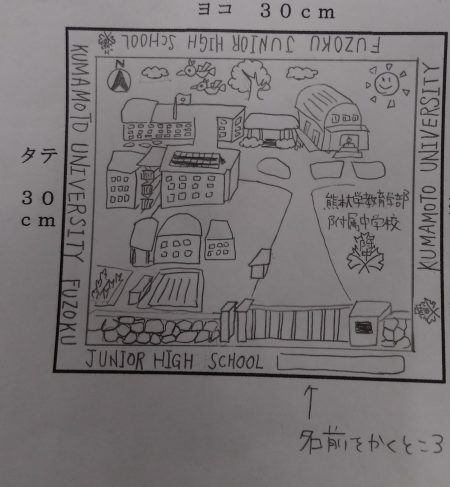 ヨコ 30cm
FUZOKU JUNIOR HIGH SCHOOL
KUMAMOTO UNIVERSITY FUZOKU
N
KUMAMOTO UNIVERSITY
タテ
30
cm
熊本大学教育学部
附属中学校
JUNIOR HIGH SCHOOL
↑
名前をかくところ